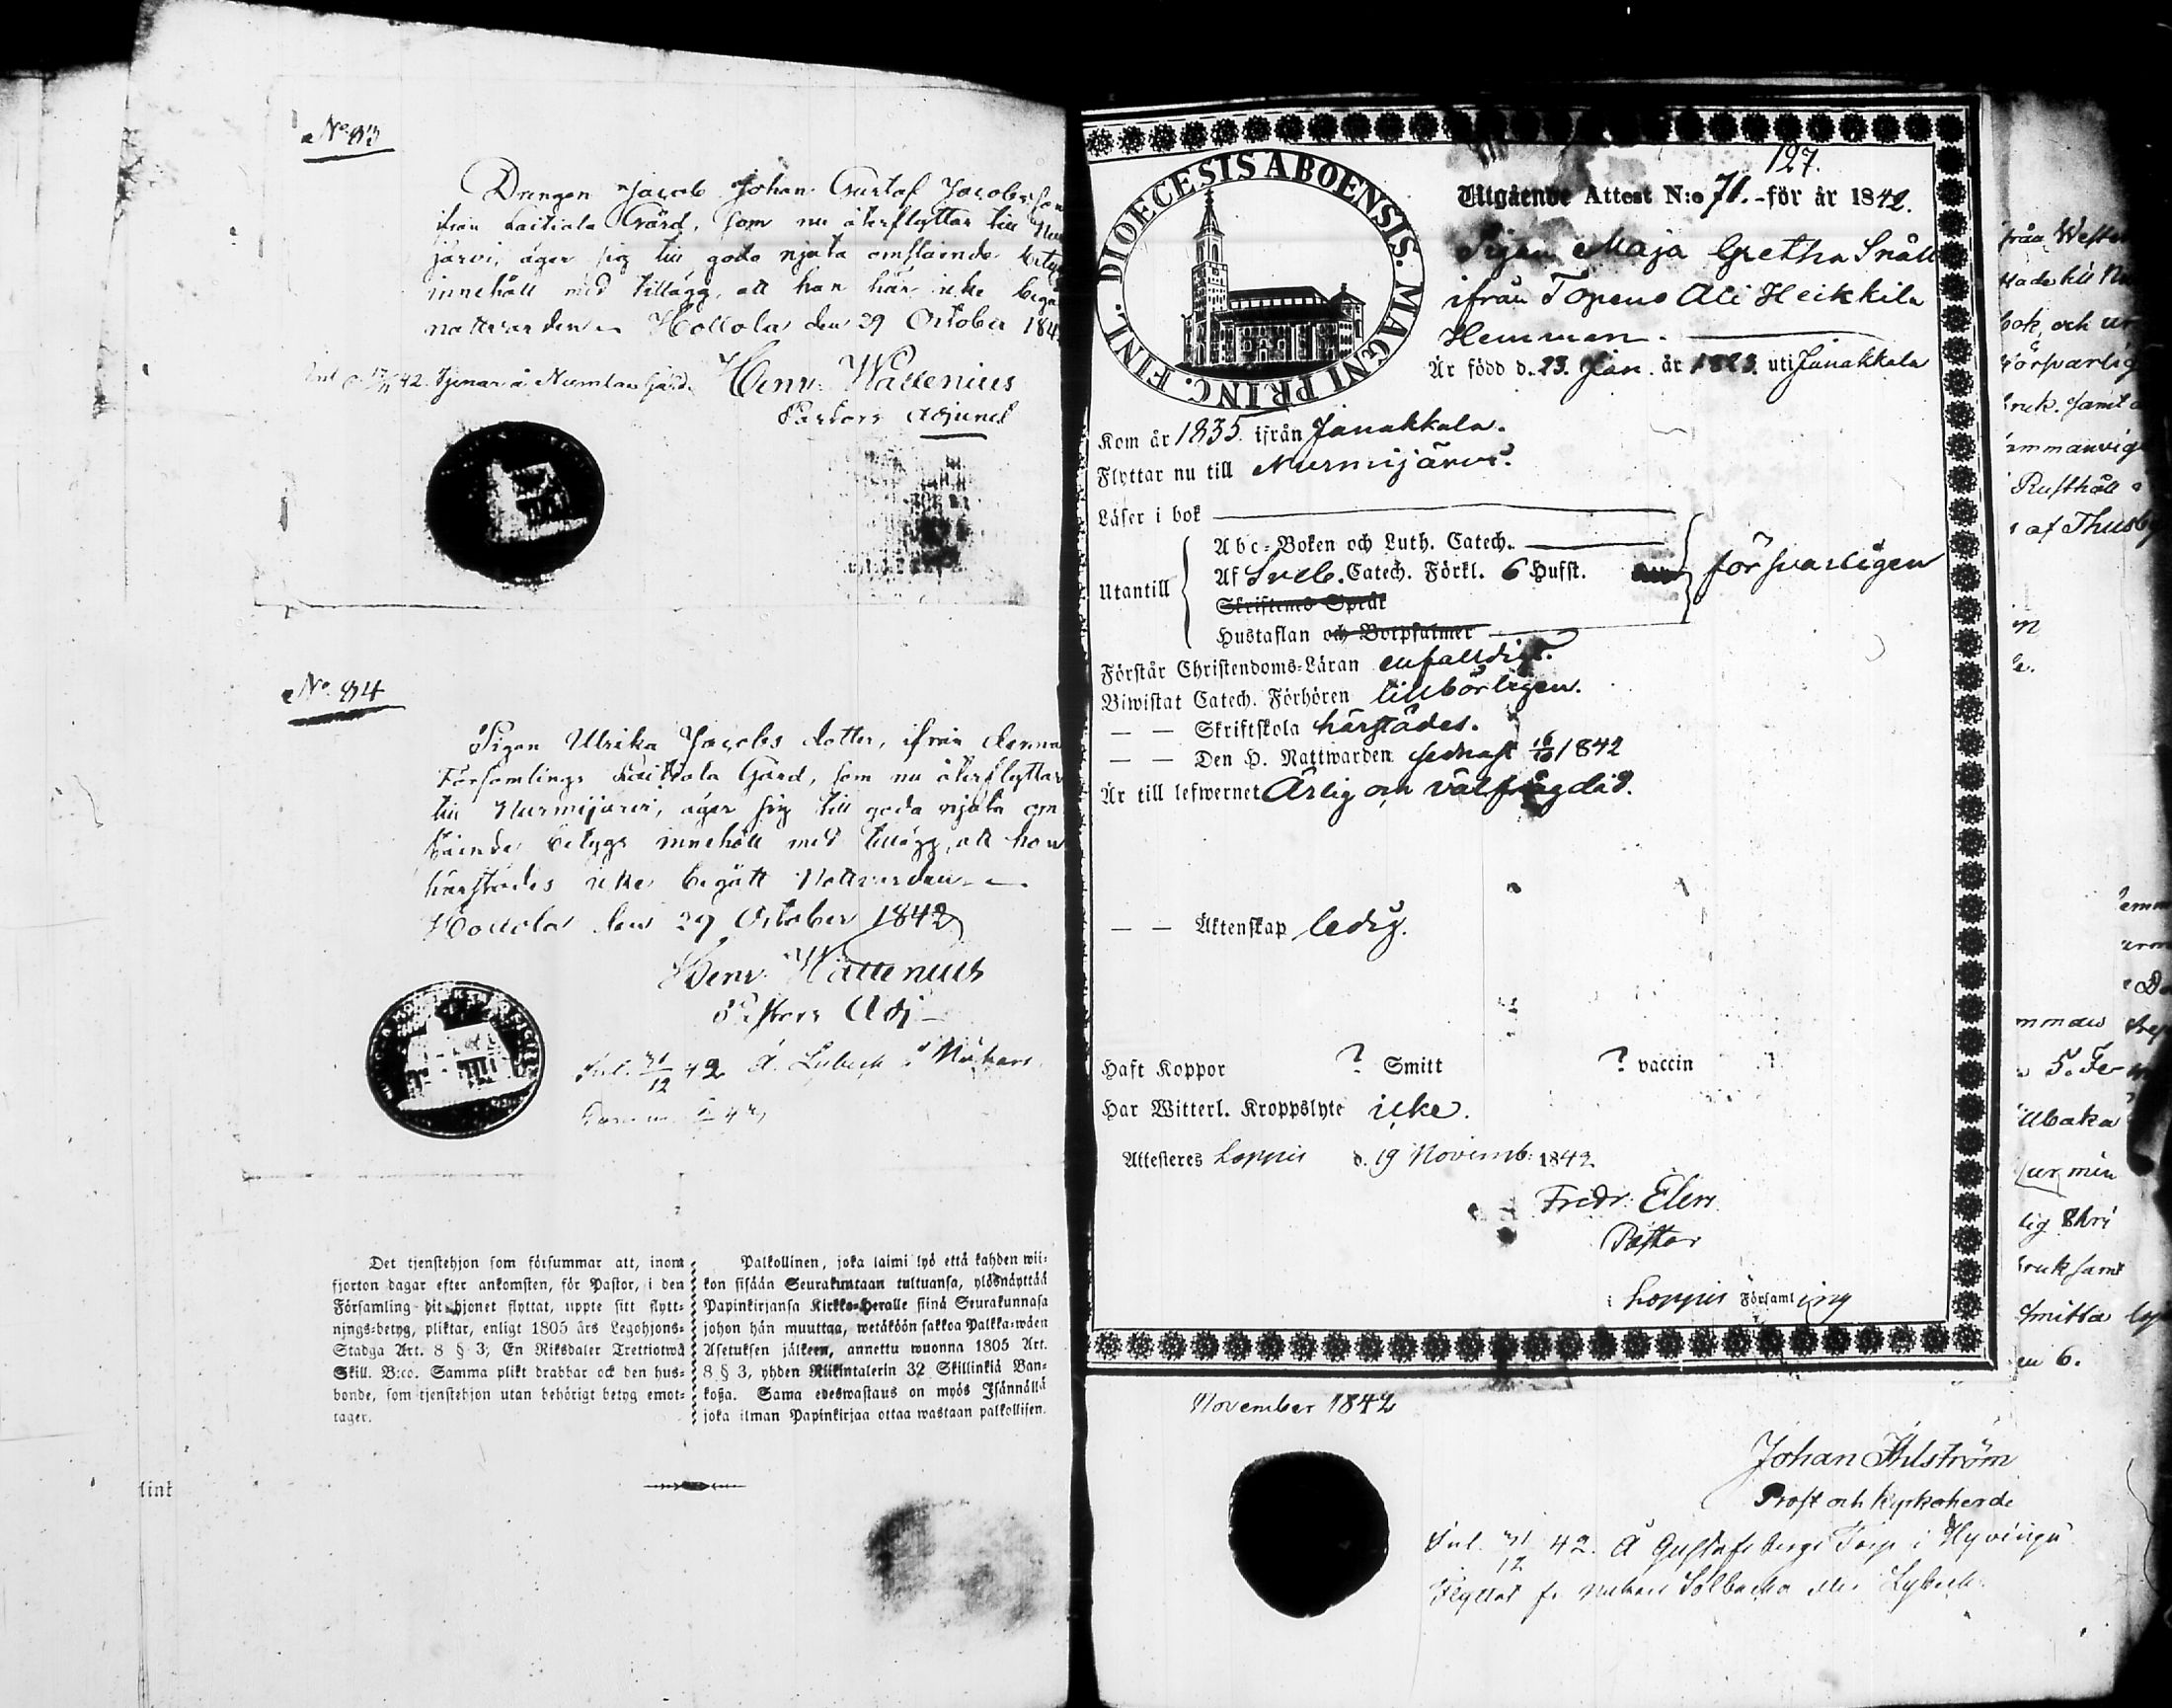 No 83
Drengen Jacob Johan Gustaf Jacobsson
ifrån Laitiala Gård, som nu återflyttar till Nur
järvi, äger sig till godo njuta omstående betyg
innehåll med tillägg, att han här icke begå
nattvarden. Hollola den 29 October 184
42. Tjenar å Numlax Gård.
Henr. Wallenius
Pastors Adjunct
No 84
Pigan Ulrika Jacobs dotter, ifrån denna
Församlings Laitiala Gård, som nu återflyttar
till Nurmijärvi, äger sig till godo njuta om
stående betygs innehåll med tillägg, att hon
härstädes icke begått Nattvarden.
Hollola den 29 October 1842
Henr. Wallenius
Pastors Adj
Inl. 31/12 42 Lybeck
Det tjenstehjon som försummar att, inom
fjorton dagar efter ankomsten, för Pastor, i den
Församling dit hjonet flyttat, uppte sitt flytt-
nings-betyg, pliktar, enligt 1805 års Legohjons-
Stadga Art. 8 § 3, En Riksdaler Trettiotwå
Skill. B:co. Samma plikt drabbar ock den hus-
bonde, som tjenstehjon utan behörigt betyg emot-
tager.
Palkollinen, joka laimi lyö että kahden wii-
kon sisään Seurakuntaan tultuansa, ylösnäyttää
Papinkirjansa Kirkko-Heralle siinä Seurakunnasa
johon hän muuttaa, wetäköön sakkoa Palkka-wäen
Asetuksen jälkeen, annettu wuonna 1805 Art.
8 § 3, yhden Riikintalerin 32 Skillinkiä Ban-
koßa. Sama edeswastaus on myös Isännällä
joka ilman Papinkirjaa ottaa wastaan palkollisen.
lint
127.
DIOECESIS ABOENSIS. MAGNI PRINC. FINL.
Utgående Attest N:o 71. för år 1842.
Pigan Maja Gretha Snäll
ifrån Topeno Ali Heikkilä
Hemman.
Är född d. 23 Jan. år 1823. uti Janakkala
Kom år 1835. ifrån Janakkala.
Flyttar nu till Nurmijärvi.
Läser i bok
Utantill
Abc-Boken och Luth. Catech.
Af Sveb. Catech. Förkl. 6 Hufst.
Skriftenes Språk
Hustaflan och Botpsalmer
försvarligen
Förstår Christendoms-Läran enfalldigt.
Biwistat Catech. Förhören tillbörligen.
— — Skriftskola härstädes.
— — Den H. Nattwarden sednast 16/10 1842
Är till lefwernet Ärlig och välfrägdad.
— — Äktenskap ledig.
Haft Koppor ? Smitt ? vaccin
Har Witterl. Kroppslyte icke.
Attesteres Loppis d. 19 Novemb: 1842
Fredr: Elers
Pastor
i Loppis Församling
November 1842
Johan Ahlström
Prost och Kyrkoherde
Inl. 31/12 42. Å Gustafsbergs Torp i Hyvinge
Flyttat Lybeck
från West
bok, och
Rusthåll
af Thusby
5.
tillbaka
lig
bruk samt
smitta
6.